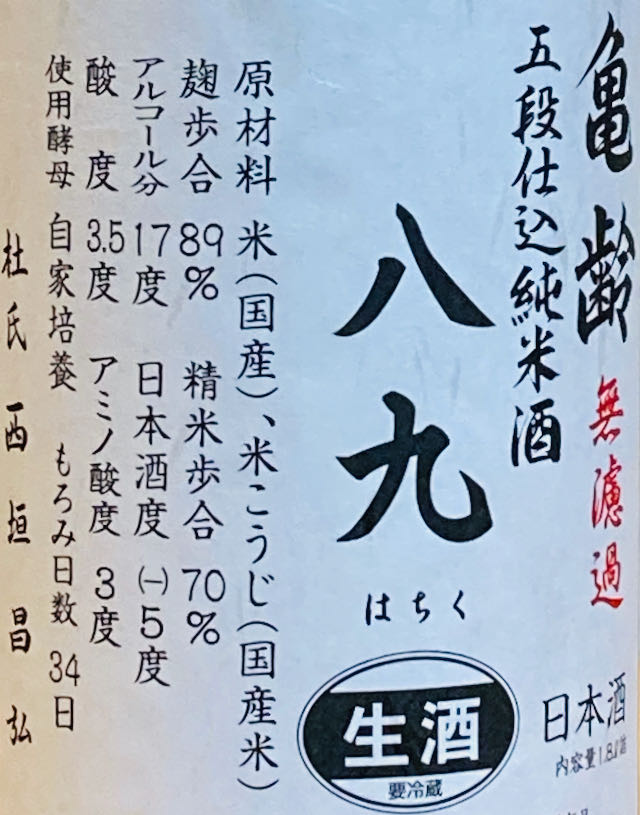 亀齢
無濾過
五段仕込純米酒
八九
はちく
生酒
要冷蔵
日本酒
内容量1.8ℓ詰
原材料 米(国産)、米こうじ(国産米)
麹歩合 89% 精米歩合 70%
アルコール分 17度 日本酒度 (一)5度
酸度 3.5度 アミノ酸度 3度
使用酵母 自家培養 もろみ日数 34日
杜氏 西垣昌弘